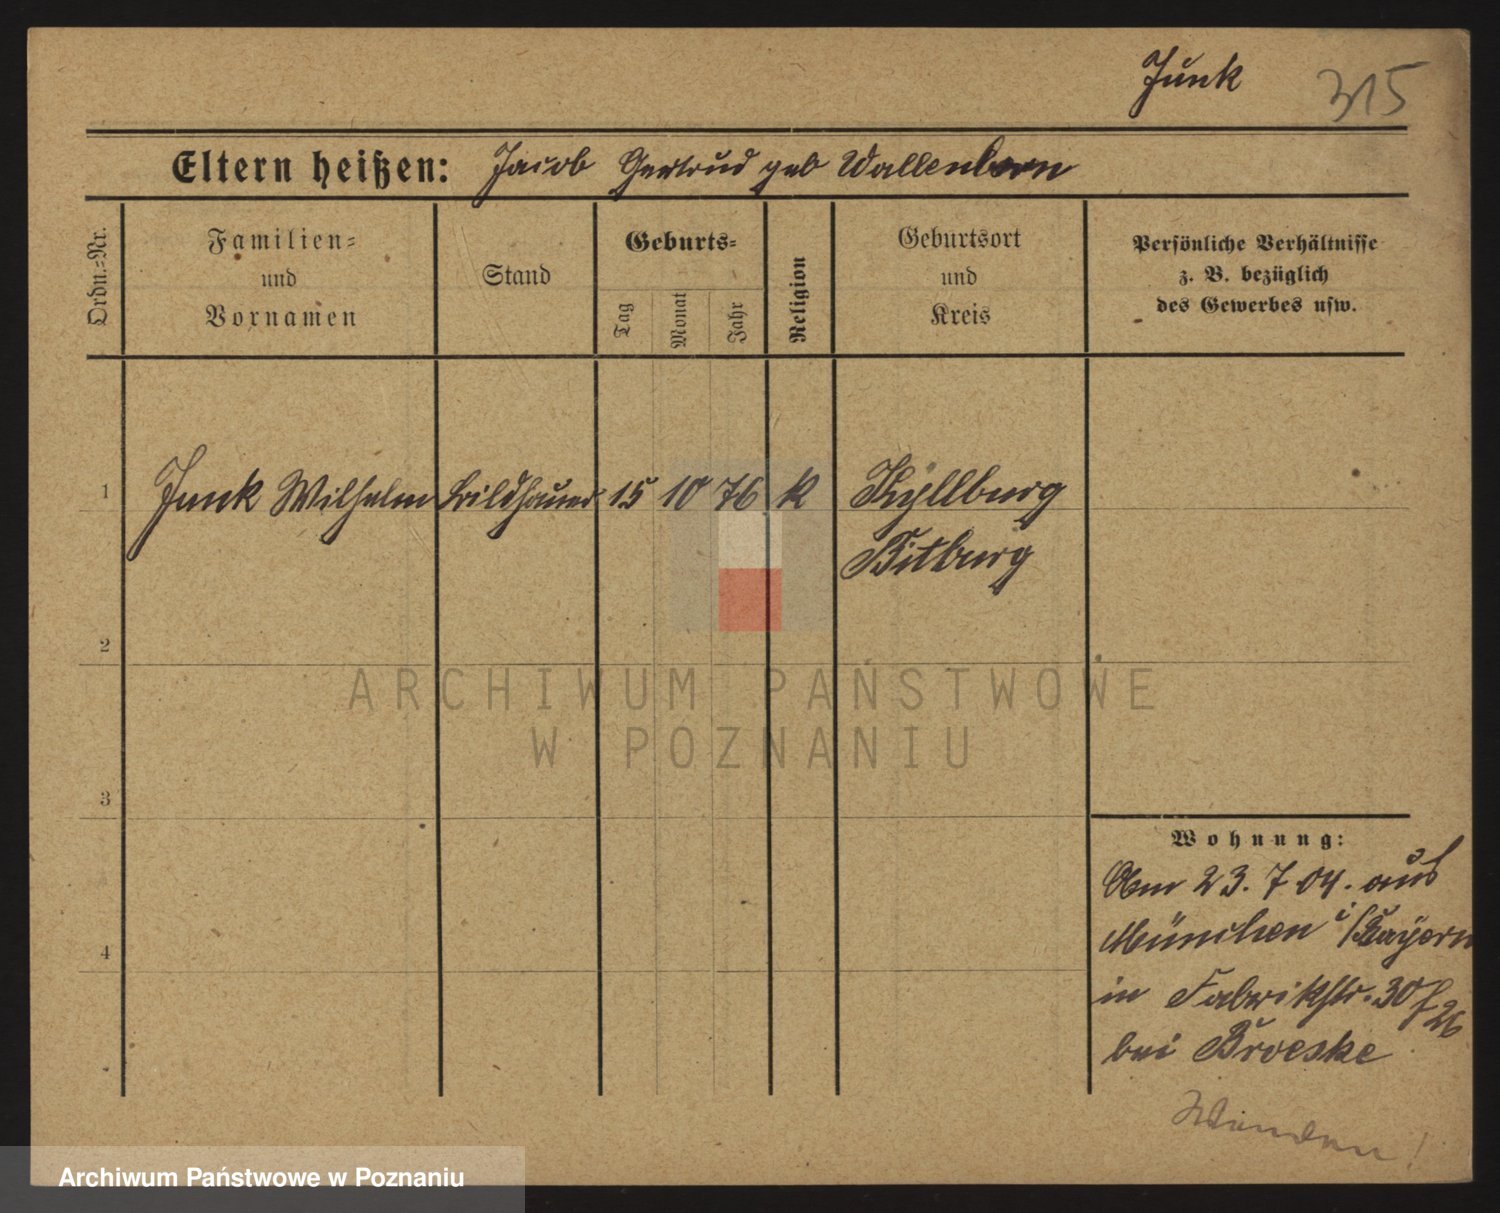 Junk 315
Eltern heißen: Jacob Gertrud geb Wallenborn
Ordn.-Nr.
Familien-
und
Vornamen
Stand
Geburts-
Tag
Monat
Jahr
Religion
Geburtsort
und
Kreis
Persönliche Verhältnisse
z. B. bezüglich
des Gewerbes usw.
1 Junk Wilhelm Bildhauer 15 10 76 k Kyllburg
Bitburg
2
3
4
ARCHIWUM PAŃSTWOWE
W POZNANIU
Wohnung:
Am 23. 7 04. aus
München i/Bayern
in Fabrikstr. 30
26
bei Broeske
Wenden!
Archiwum Państwowe w Poznaniu